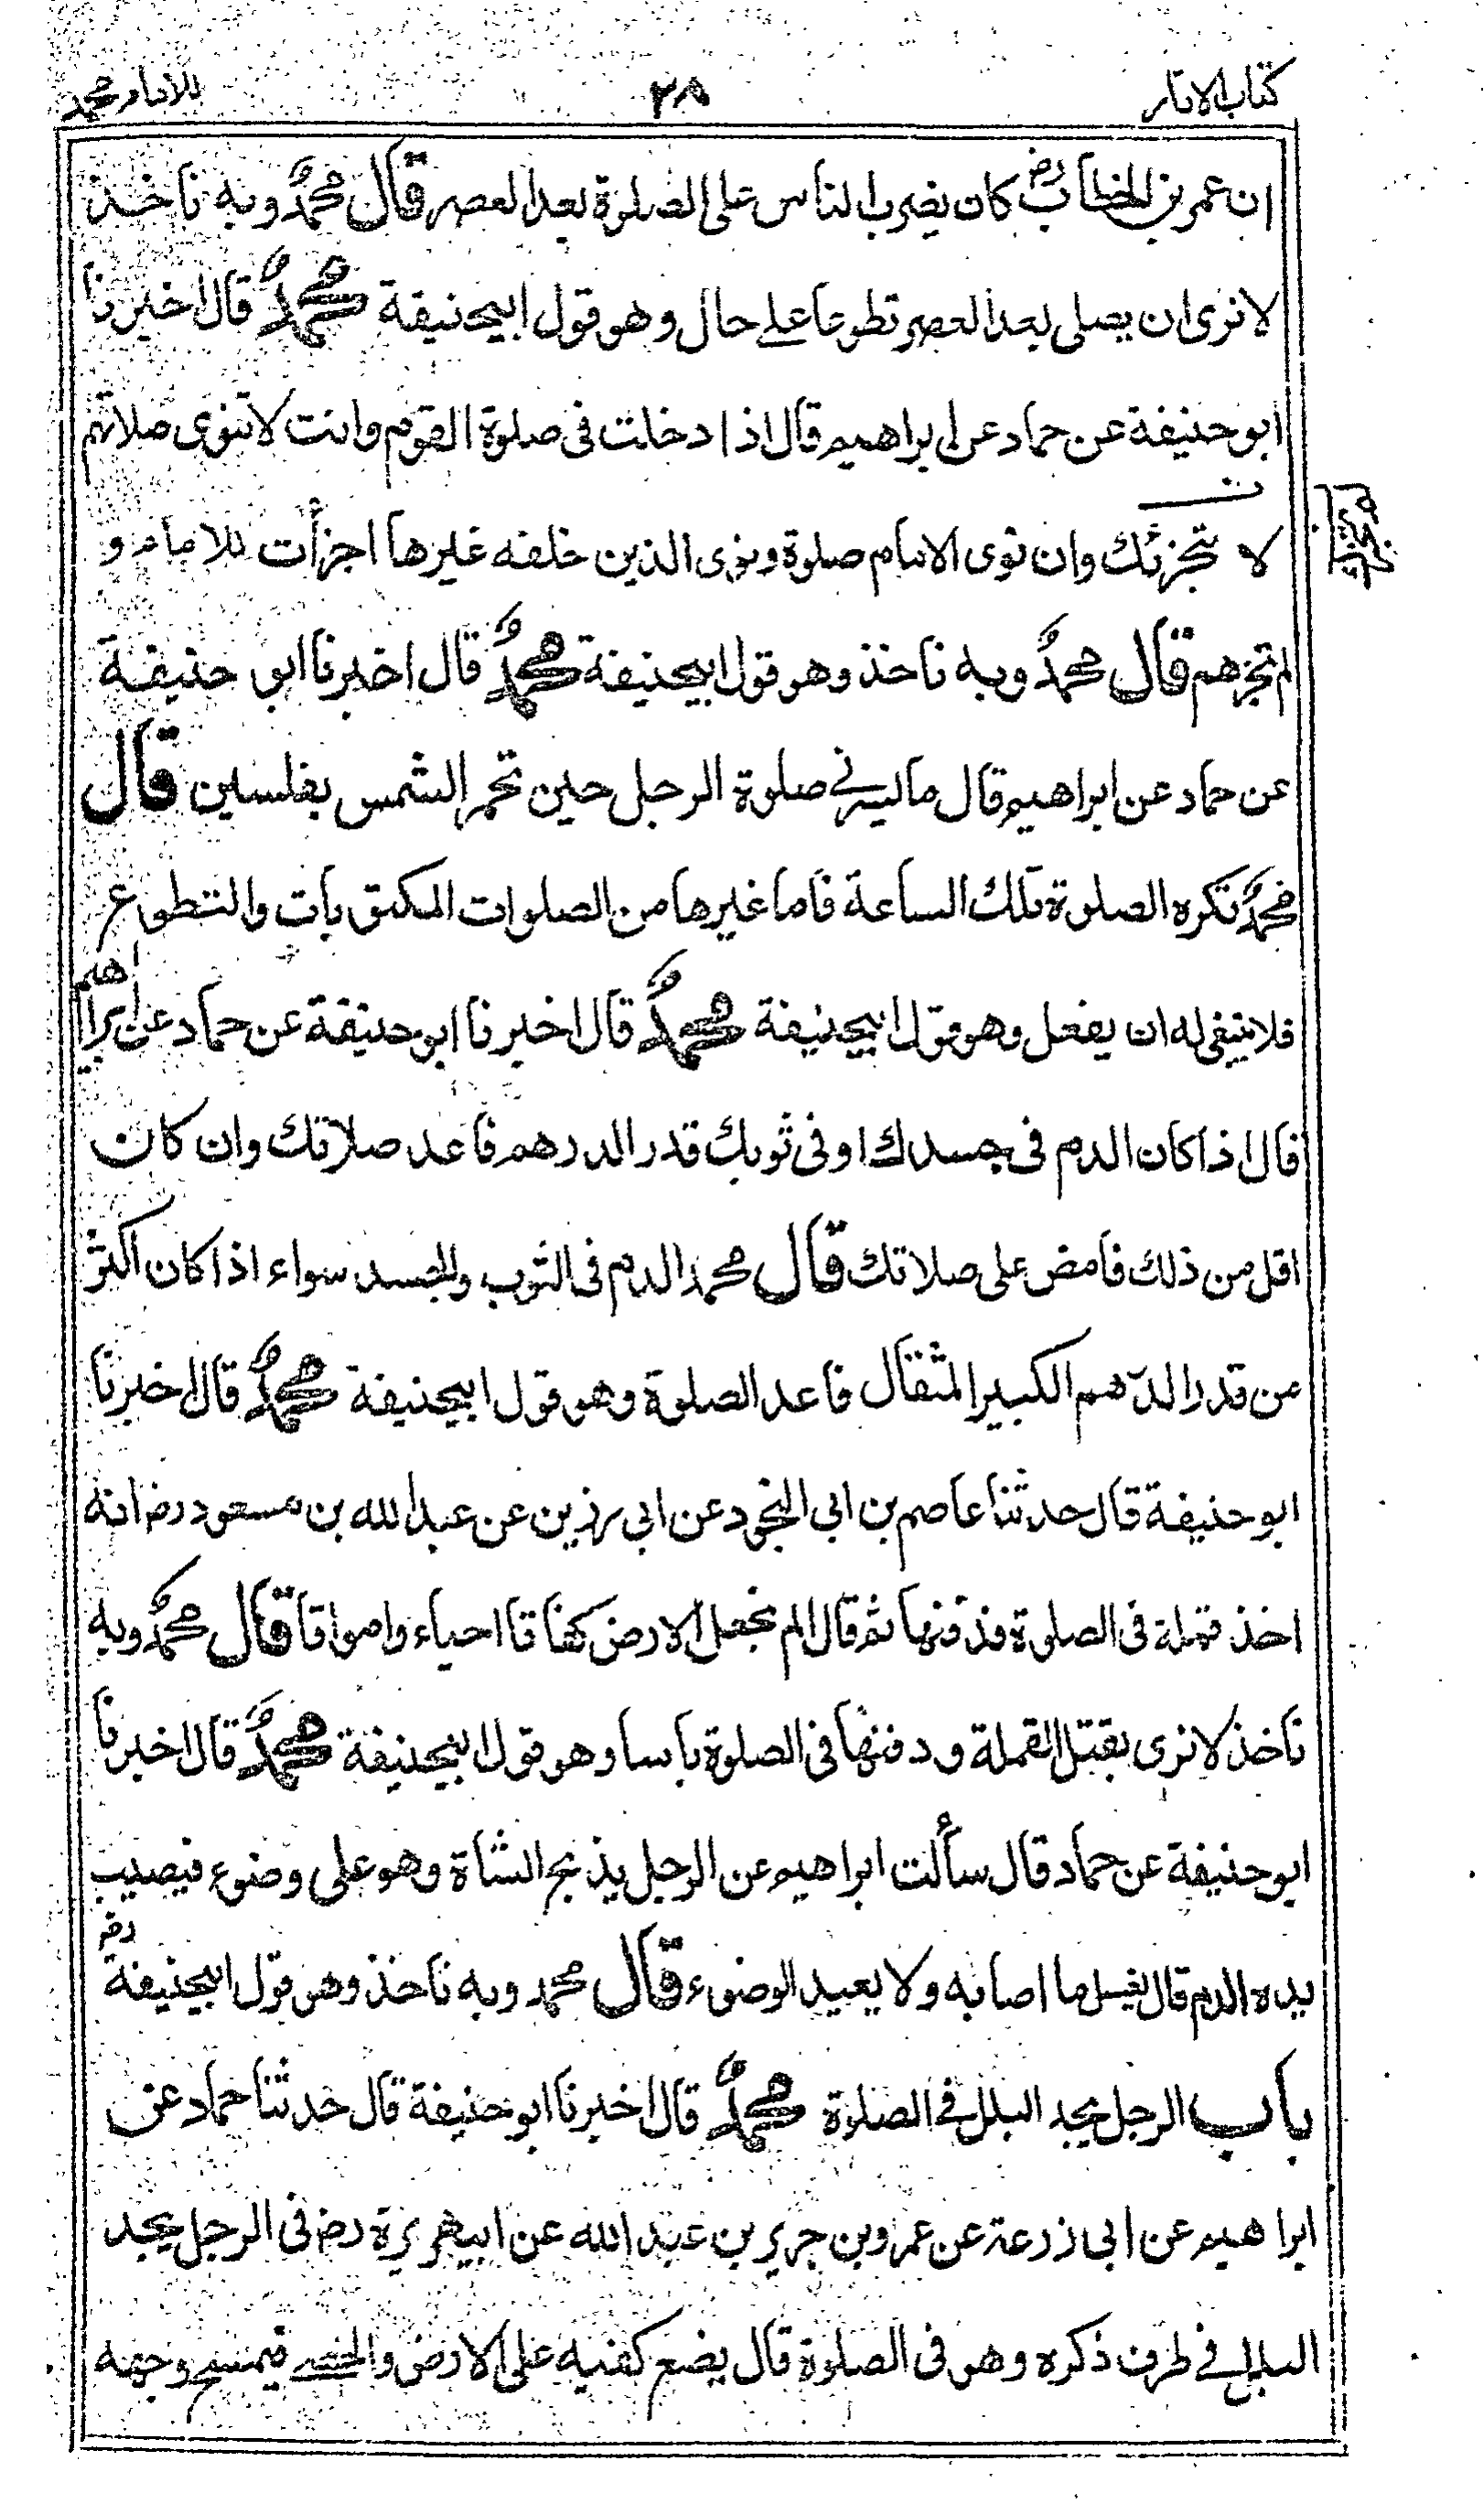 كتاب الاثار ٣٨ للامام محمد
ان عمر بن الخطاب رض كان يضرب الناس على الصلوة بعد العصر قال محمد وبه ناخذ
لا نرى ان يصلى بعد العصر تطوعا على حال وهو قول ابيحنيفة محمد قال اخبرنا
ابو حنيفة عن حماد عن ابراهيم قال اذا دخلت فى صلوة القوم وانت لا تنوى صلاتهم
لا تجزئك وان نوى الامام صلوة ونوى الذين خلفه غيرها اجزأت للامام و
لم تجزهم قال محمد وبه ناخذ وهو قول ابيحنيفة محمد قال اخبرنا ابو حنيفة
عن حماد عن ابراهيم قال ما ليسرنى صلوة الرجل حين تحمر الشمس بفلسين قال
محمد تكره الصلوة تلك الساعة فاما غيرها من الصلوات المكتوبات والتطوع
فلا ينبغى له ان يفعل وهو قول ابيحنيفة محمد قال اخبرنا ابو حنيفة عن حماد عن ابراهيم
قال اذا كان الدم فى جسدك او فى ثوبك قدر الدرهم فاعد صلاتك وان كان
اقل من ذلك فامض على صلاتك قال محمد الدم فى الثوب والجسد سواء اذا كان اكثر
من قدر الدرهم الكبير المثقال فاعد الصلوة وهو قول ابيحنيفة محمد قال اخبرنا
ابو حنيفة قال حدثنا عاصم بن ابى النجود عن ابى رزين عن عبد الله بن مسعود رض انه
اخذ قملة فى الصلوة فدفنها ثم قال الم نجعل الارض كفاتا احياء وامواتا قال محمد وبه
ناخذ لا نرى بقتل القملة ودفنها فى الصلوة باسا وهو قول ابيحنيفة محمد قال اخبرنا
ابو حنيفة عن حماد قال سألت ابراهيم عن الرجل يذبح الشاة وهو على وضوء فيصيب
يده الدم قال يغسل ما اصابه ولا يعيد الوضوء قال محمد وبه ناخذ وهو قول ابيحنيفة رض
باب الرجل يجد البلل فى الصلوة محمد قال اخبرنا ابو حنيفة قال حدثنا حماد عن
ابراهيم عن ابى زرعة عن عمرو بن جرير بن عبد الله عن ابيهريرة رض فى الرجل يجد
البلل فى طرف ذكره وهو فى الصلوة قال يضع كفيه على الارض والحصى فيمسح وجهه